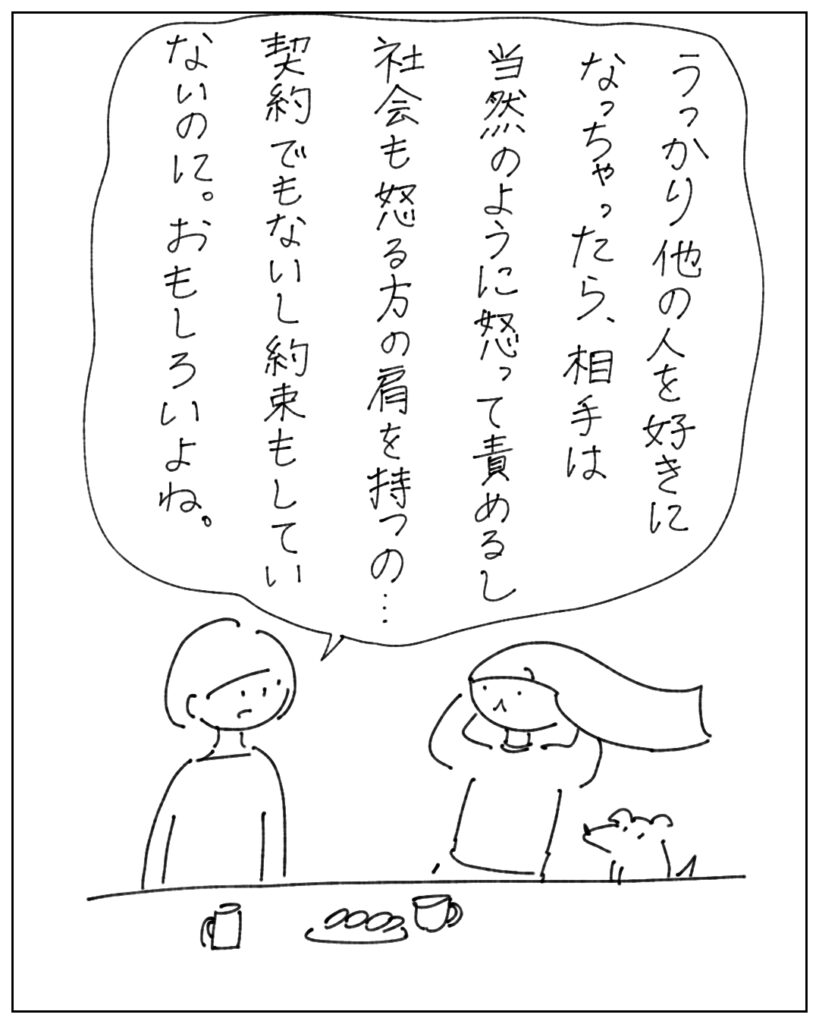 うっかり他の人を好きに
なっちゃったら、相手は
当然のように怒って責めるし
社会も怒る方の肩を持つの…
契約でもないし約束もしてい
ないのに。おもしろいよね。